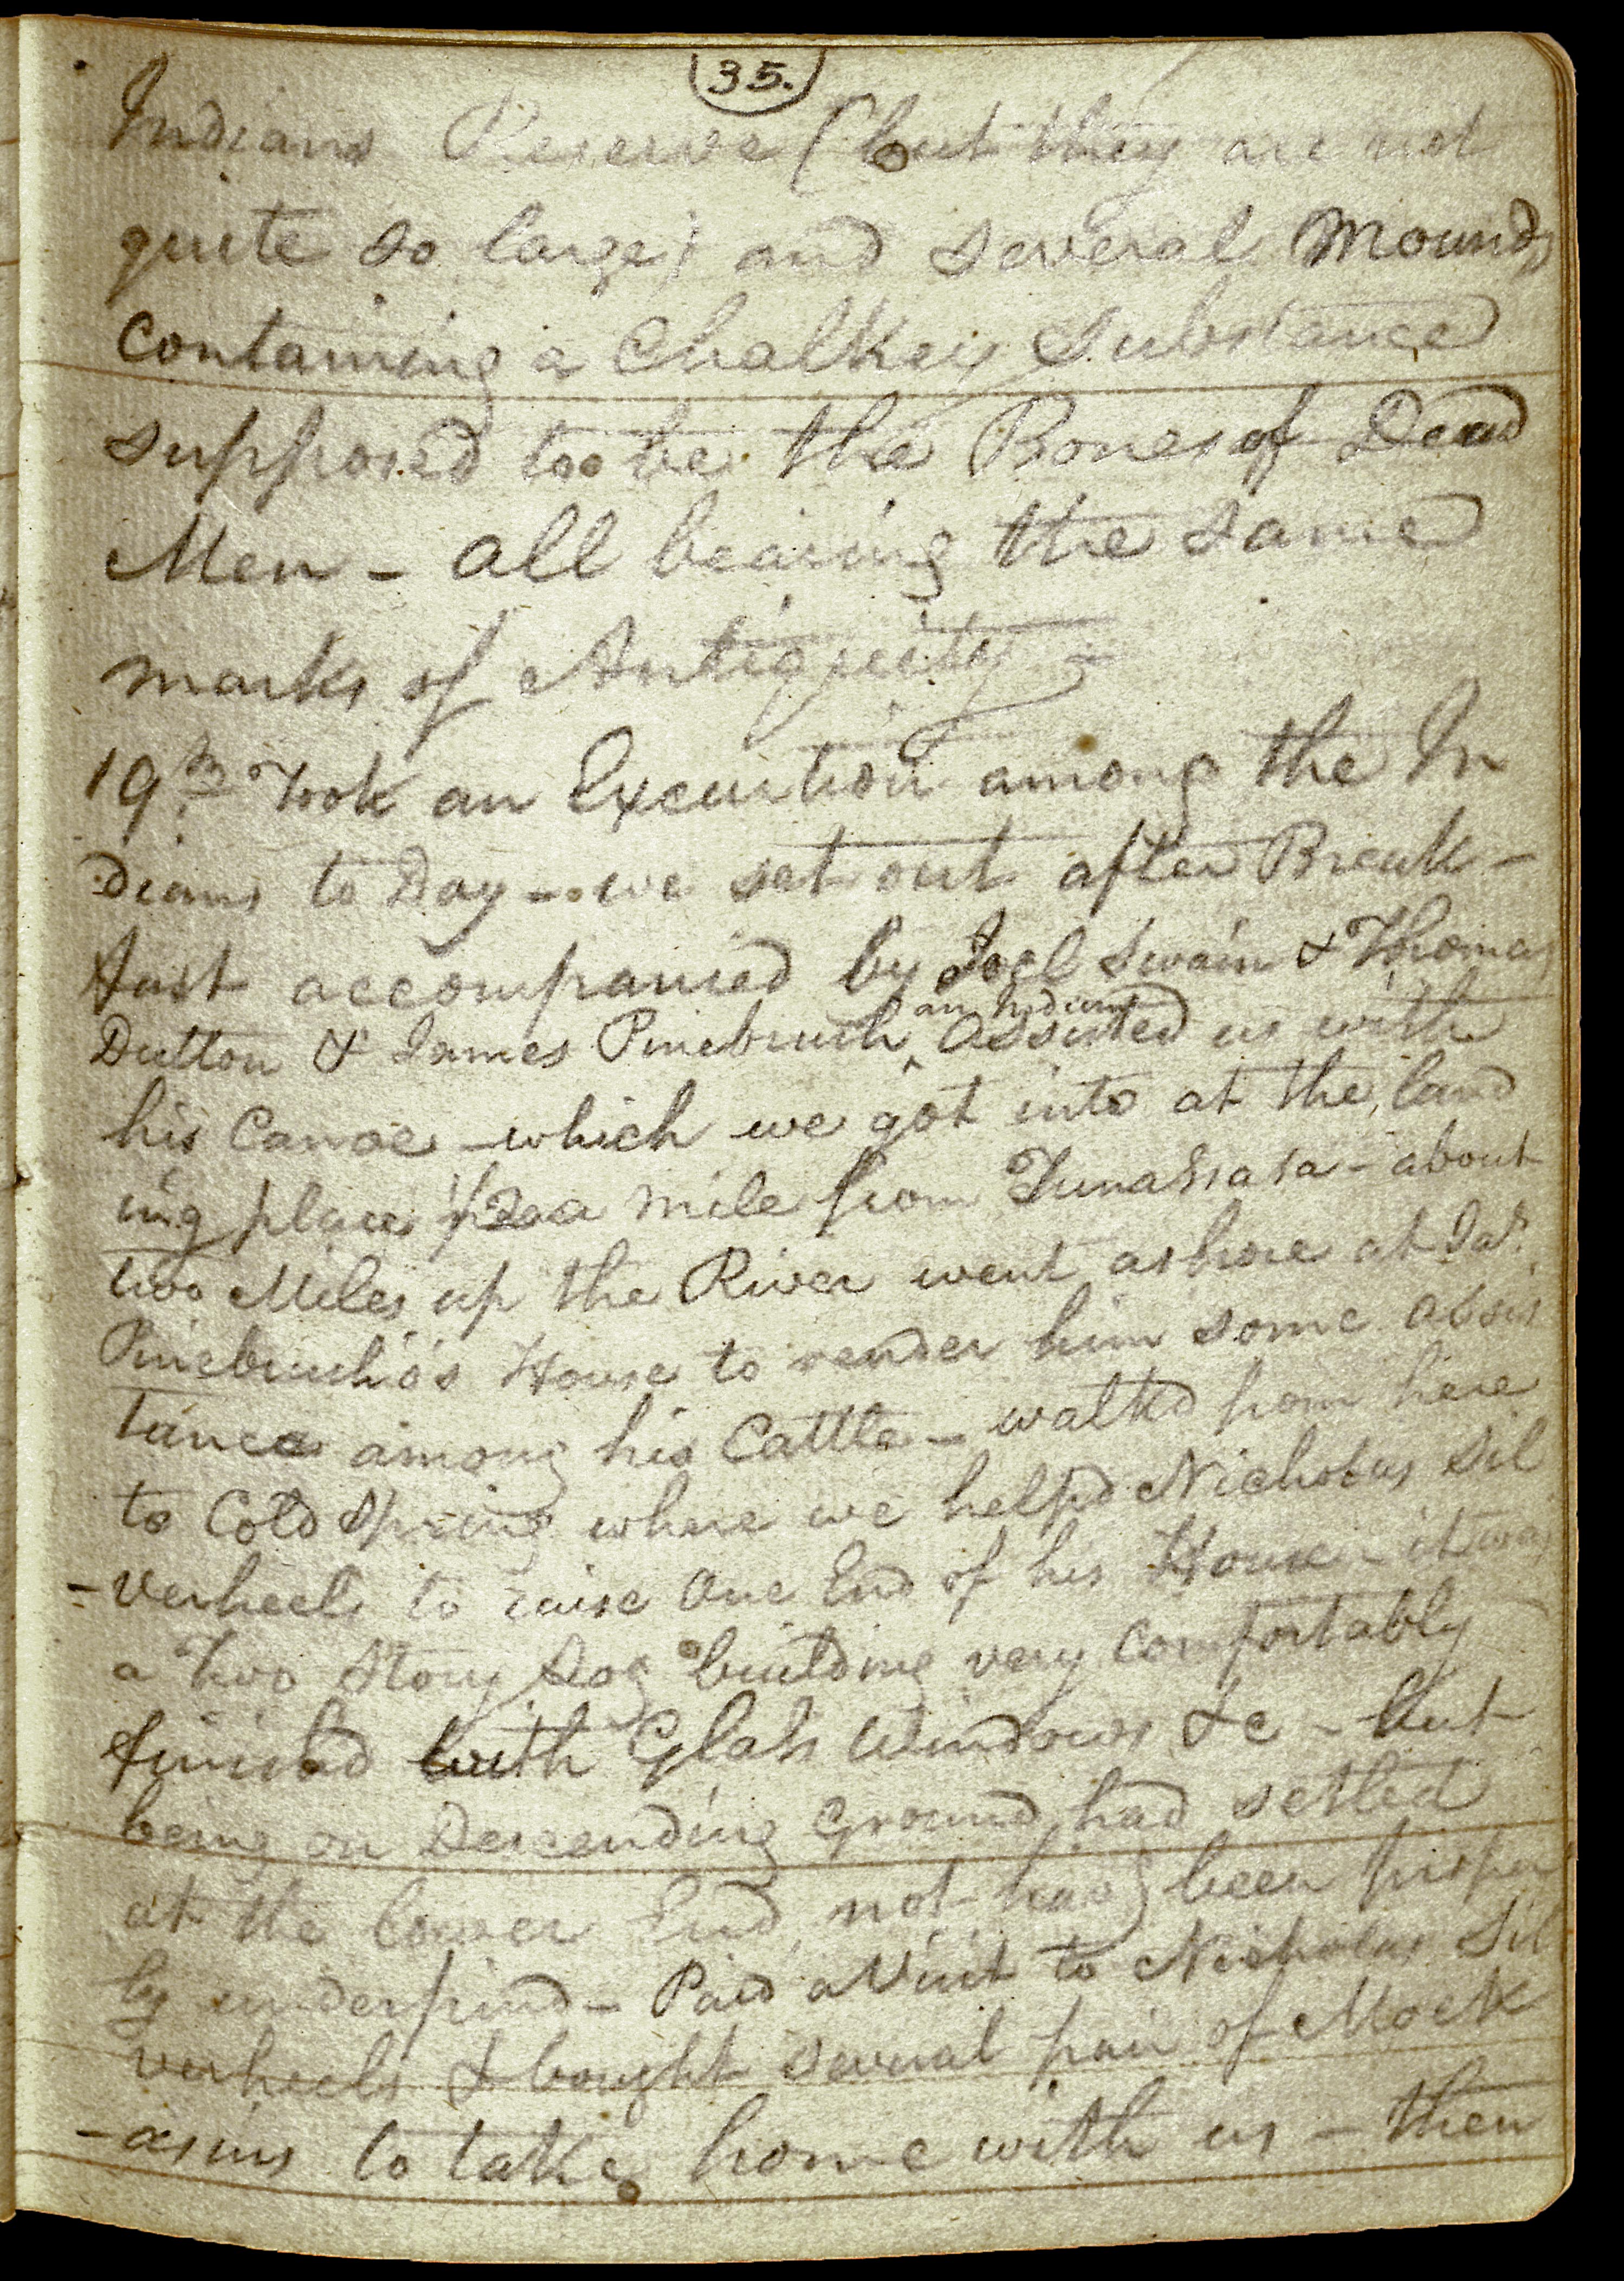 35.
Indians Reserve (but they are not
quite so large) and several Mounds
Containing a Chalkey Substance
supposed too be the Bones of Dead
Men - all bearing the same
marks of Antiquity -
19th Took an Excurtion among the In
dians to Day - we set out after Break -
fast accompanied by Joel Swain & Thomas
Dutton & James Pinebrush ^ an Indian Assisted us with
his Canoe - which we got into at the land
ing place 1/2 a mile from Tunassasa - about
two Miles up the River went ashore at Jas.
Pinebrush's House to render him some assis
tance among his Cattle - walkd from here
to Cold Spring where we helpd Nicholas Sil
-verheels to raise One End of his House - it was
a two Story Log building very Comfortably
finishd with Glass Windows &c - but
being on Descending Ground had setled
at the lower End, not havg been proper
ly underpind - Paid a Visit to Nicholas Sil
verheels & bought several pair of Mock
-asins to take home with us - then